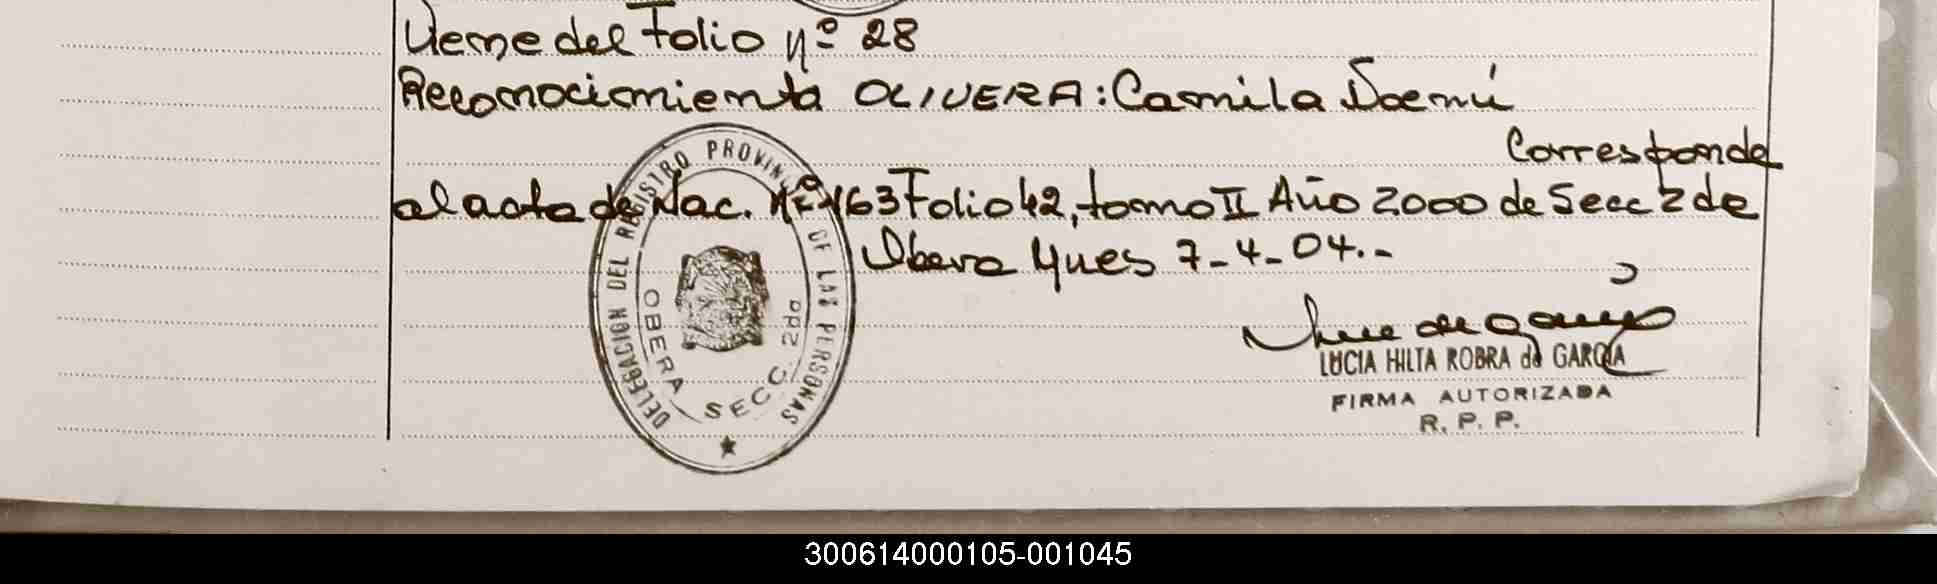 Viene del Folio nº 28
Reconocimiento OLIVERA: Camila Noemí
Corresponde
al acta de Nac. Nº 463 Folio 42, tomo II Año 2000 de Secc 2 de
Obera Mnes 7-4-04.-
DELEGACION DEL REGISTRO PROVINCIAL DE LAS PERSONAS
OBERA SECC. 2da
LUCIA HILTA ROBRA de GARCIA
FIRMA AUTORIZADA
R. P. P.
300614000105-001045